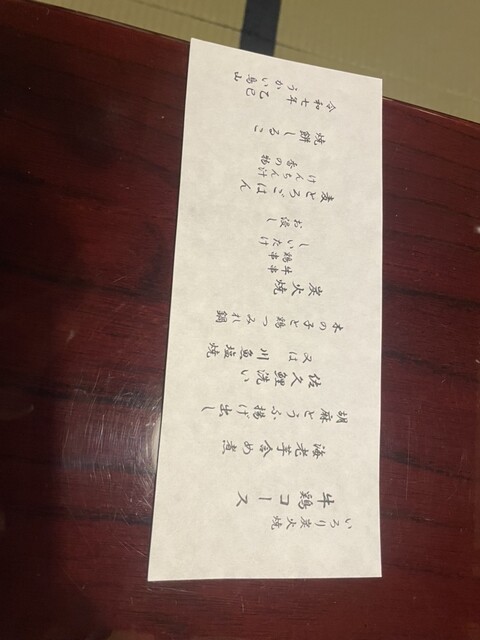 いろり炭火焼
牛鶏コース
海老芋含め煮
胡麻とうふ揚げ出し
佐久鯉洗い
又は川魚塩焼
木の子と鶏つみれ鍋
炭火焼
牛串
鶏串
しいたけ
お浸し
麦とろごはん
けんちん汁
香の物
焼餅しるこ
令和七年乙巳
うかい鳥山